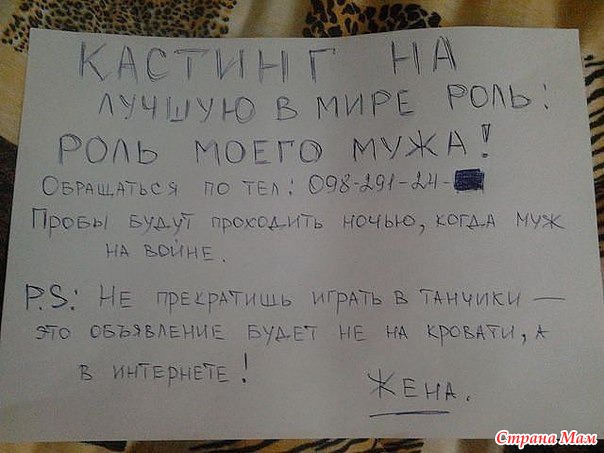 КАСТИНГ НА
ЛУЧШУЮ В МИРЕ РОЛЬ:
РОЛЬ МОЕГО МУЖА!
ОБРАЩАТЬСЯ ПО ТЕЛ: 098-291-24-
ПРОБЫ БУДУТ ПРОХОДИТЬ НОЧЬЮ, КОГДА МУЖ
НА ВОЙНЕ.
P.S: НЕ ПРЕКРАТИШЬ ИГРАТЬ В ТАНЧИКИ —
ЭТО ОБЪЯВЛЕНИЕ БУДЕТ НЕ НА КРОВАТИ, А
В ИНТЕРНЕТЕ!
ЖЕНА.
Страна Мам